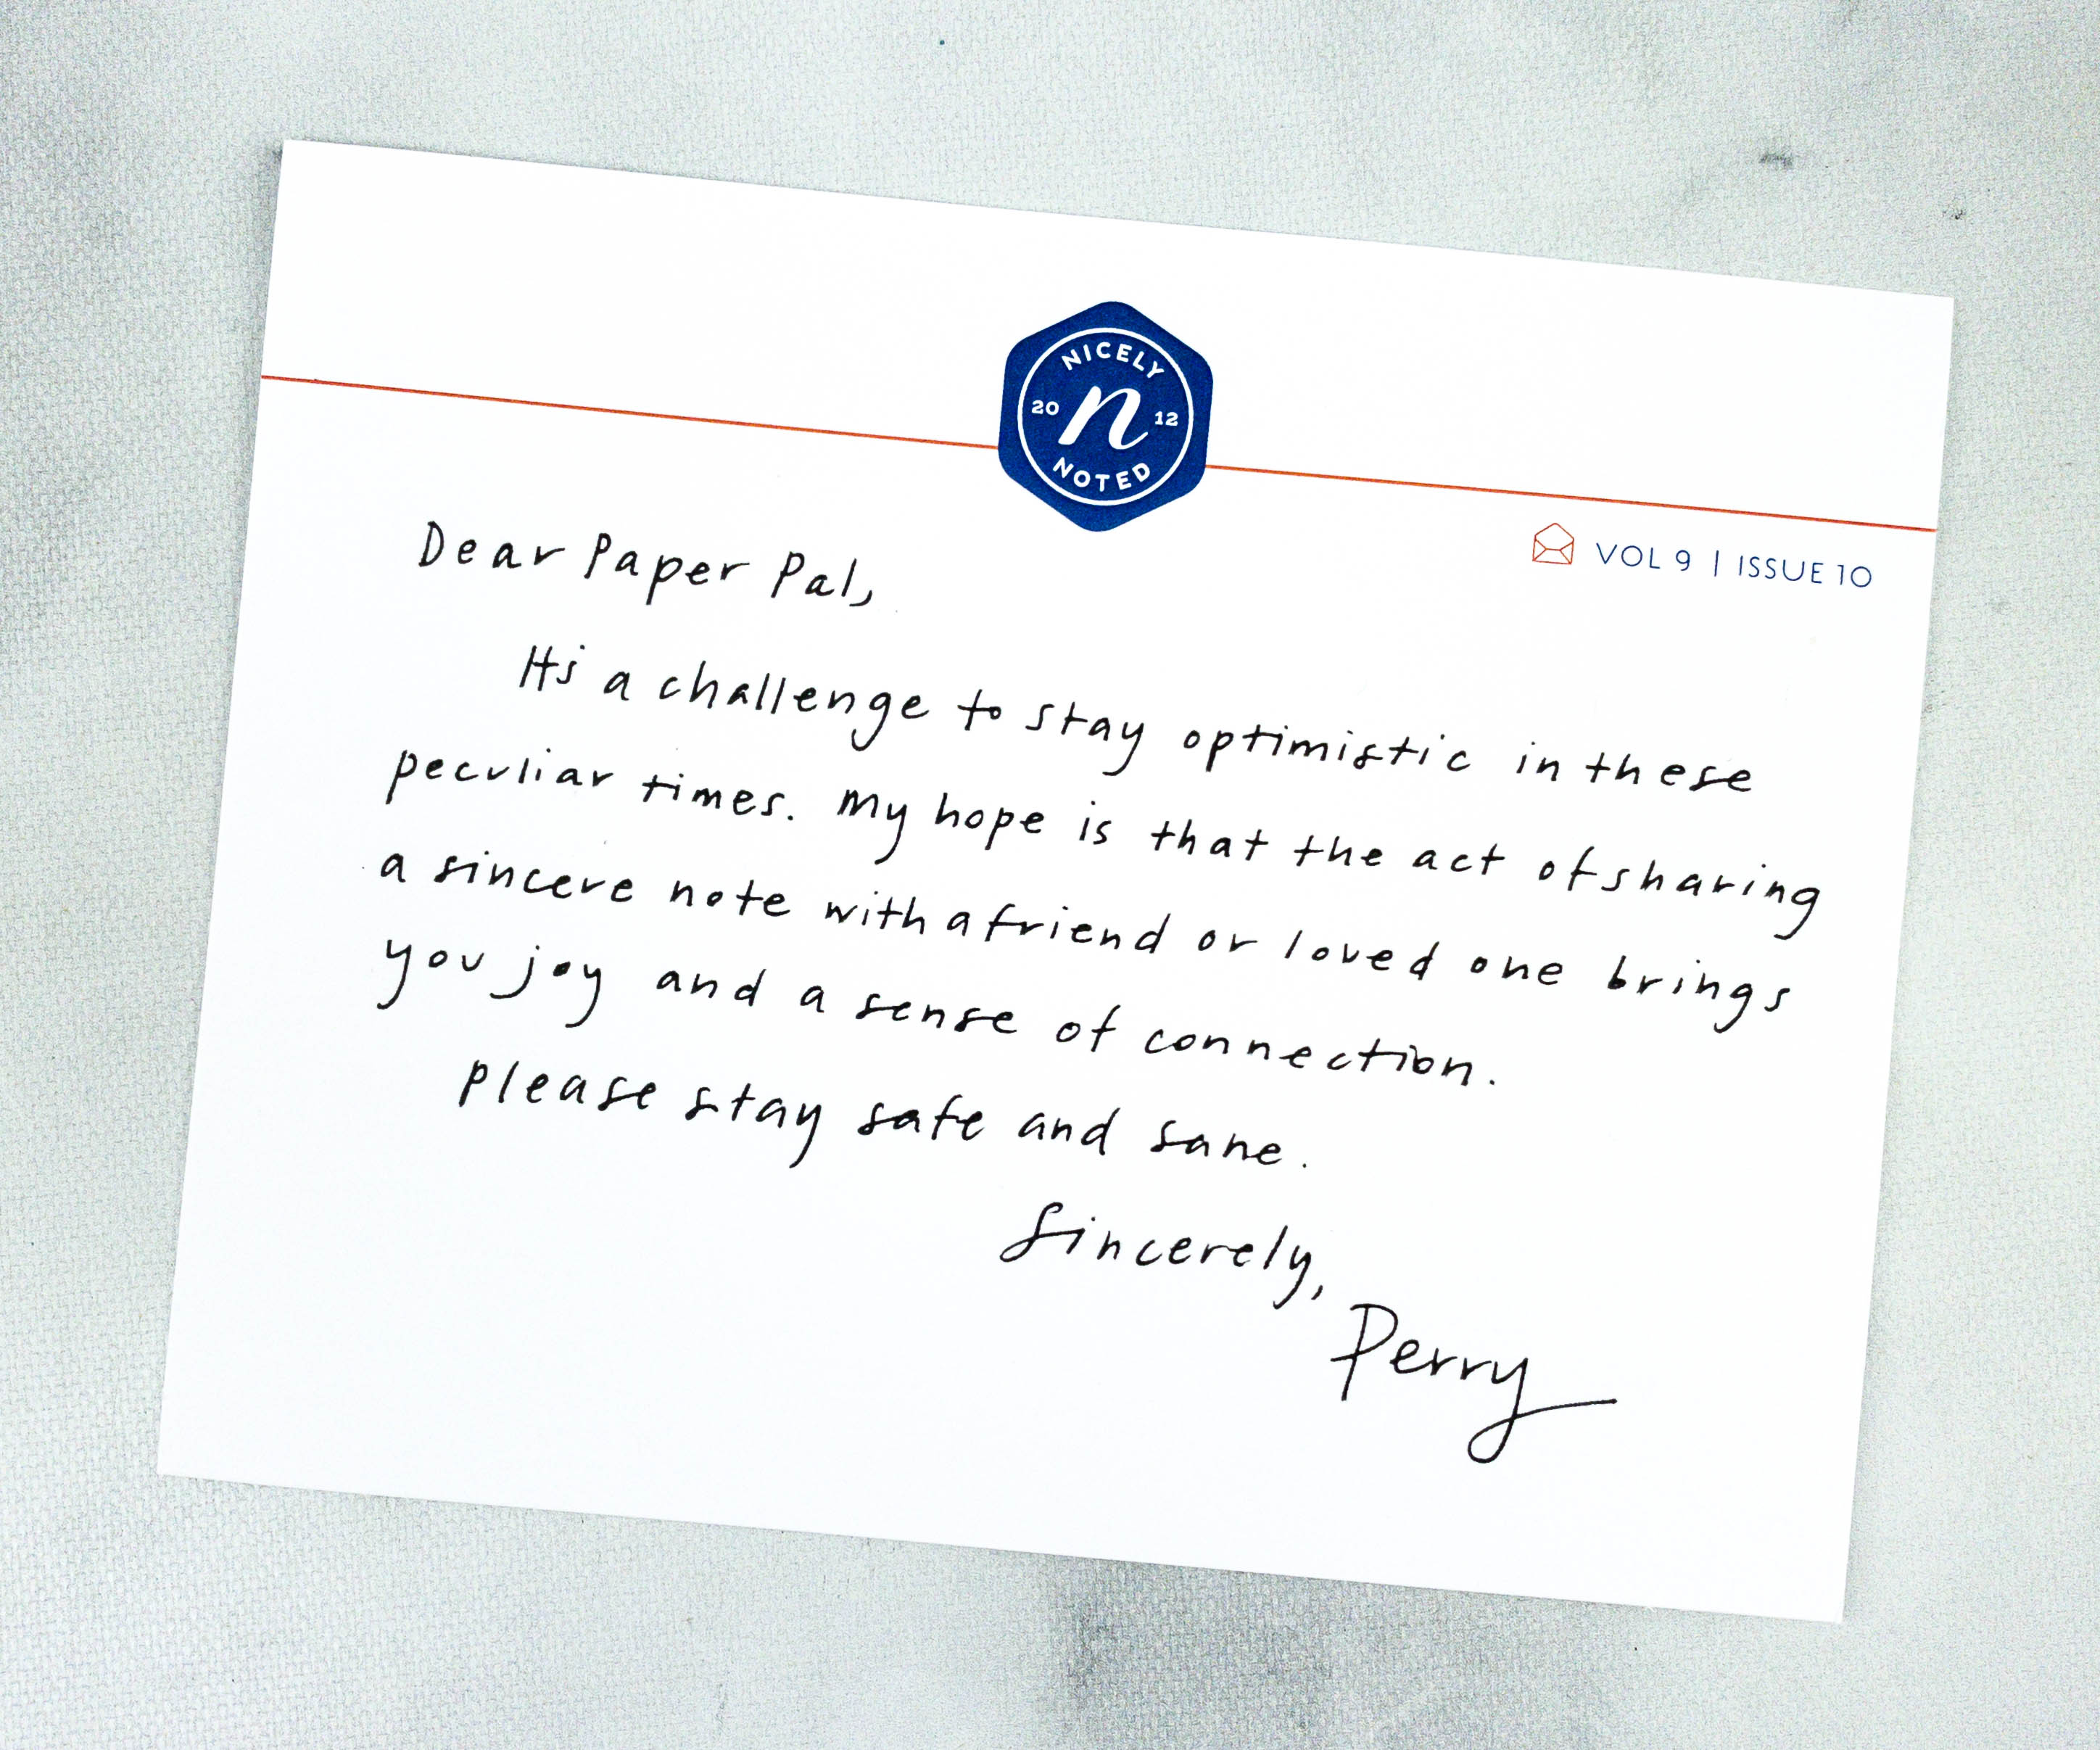 NICELY
20 n 12
NOTED
VOL 9 | ISSUE 10
Dear Paper Pal,
It's a challenge to stay optimistic in these
peculiar times. My hope is that the act of sharing
a sincere note with a friend or loved one brings
you joy and a sense of connection.
Please stay safe and sane.
Sincerely,
Perry